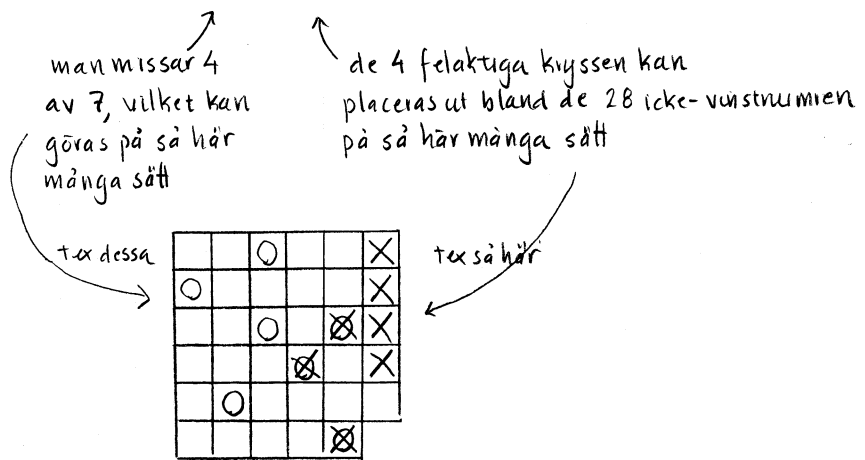 man missar 4
av 7, vilket kan
göras på så här
många sätt
de 4 felaktiga kryssen kan
placeras ut bland de 28 icke-vinstnumren
på så här många sätt
tex dessa
tex så här